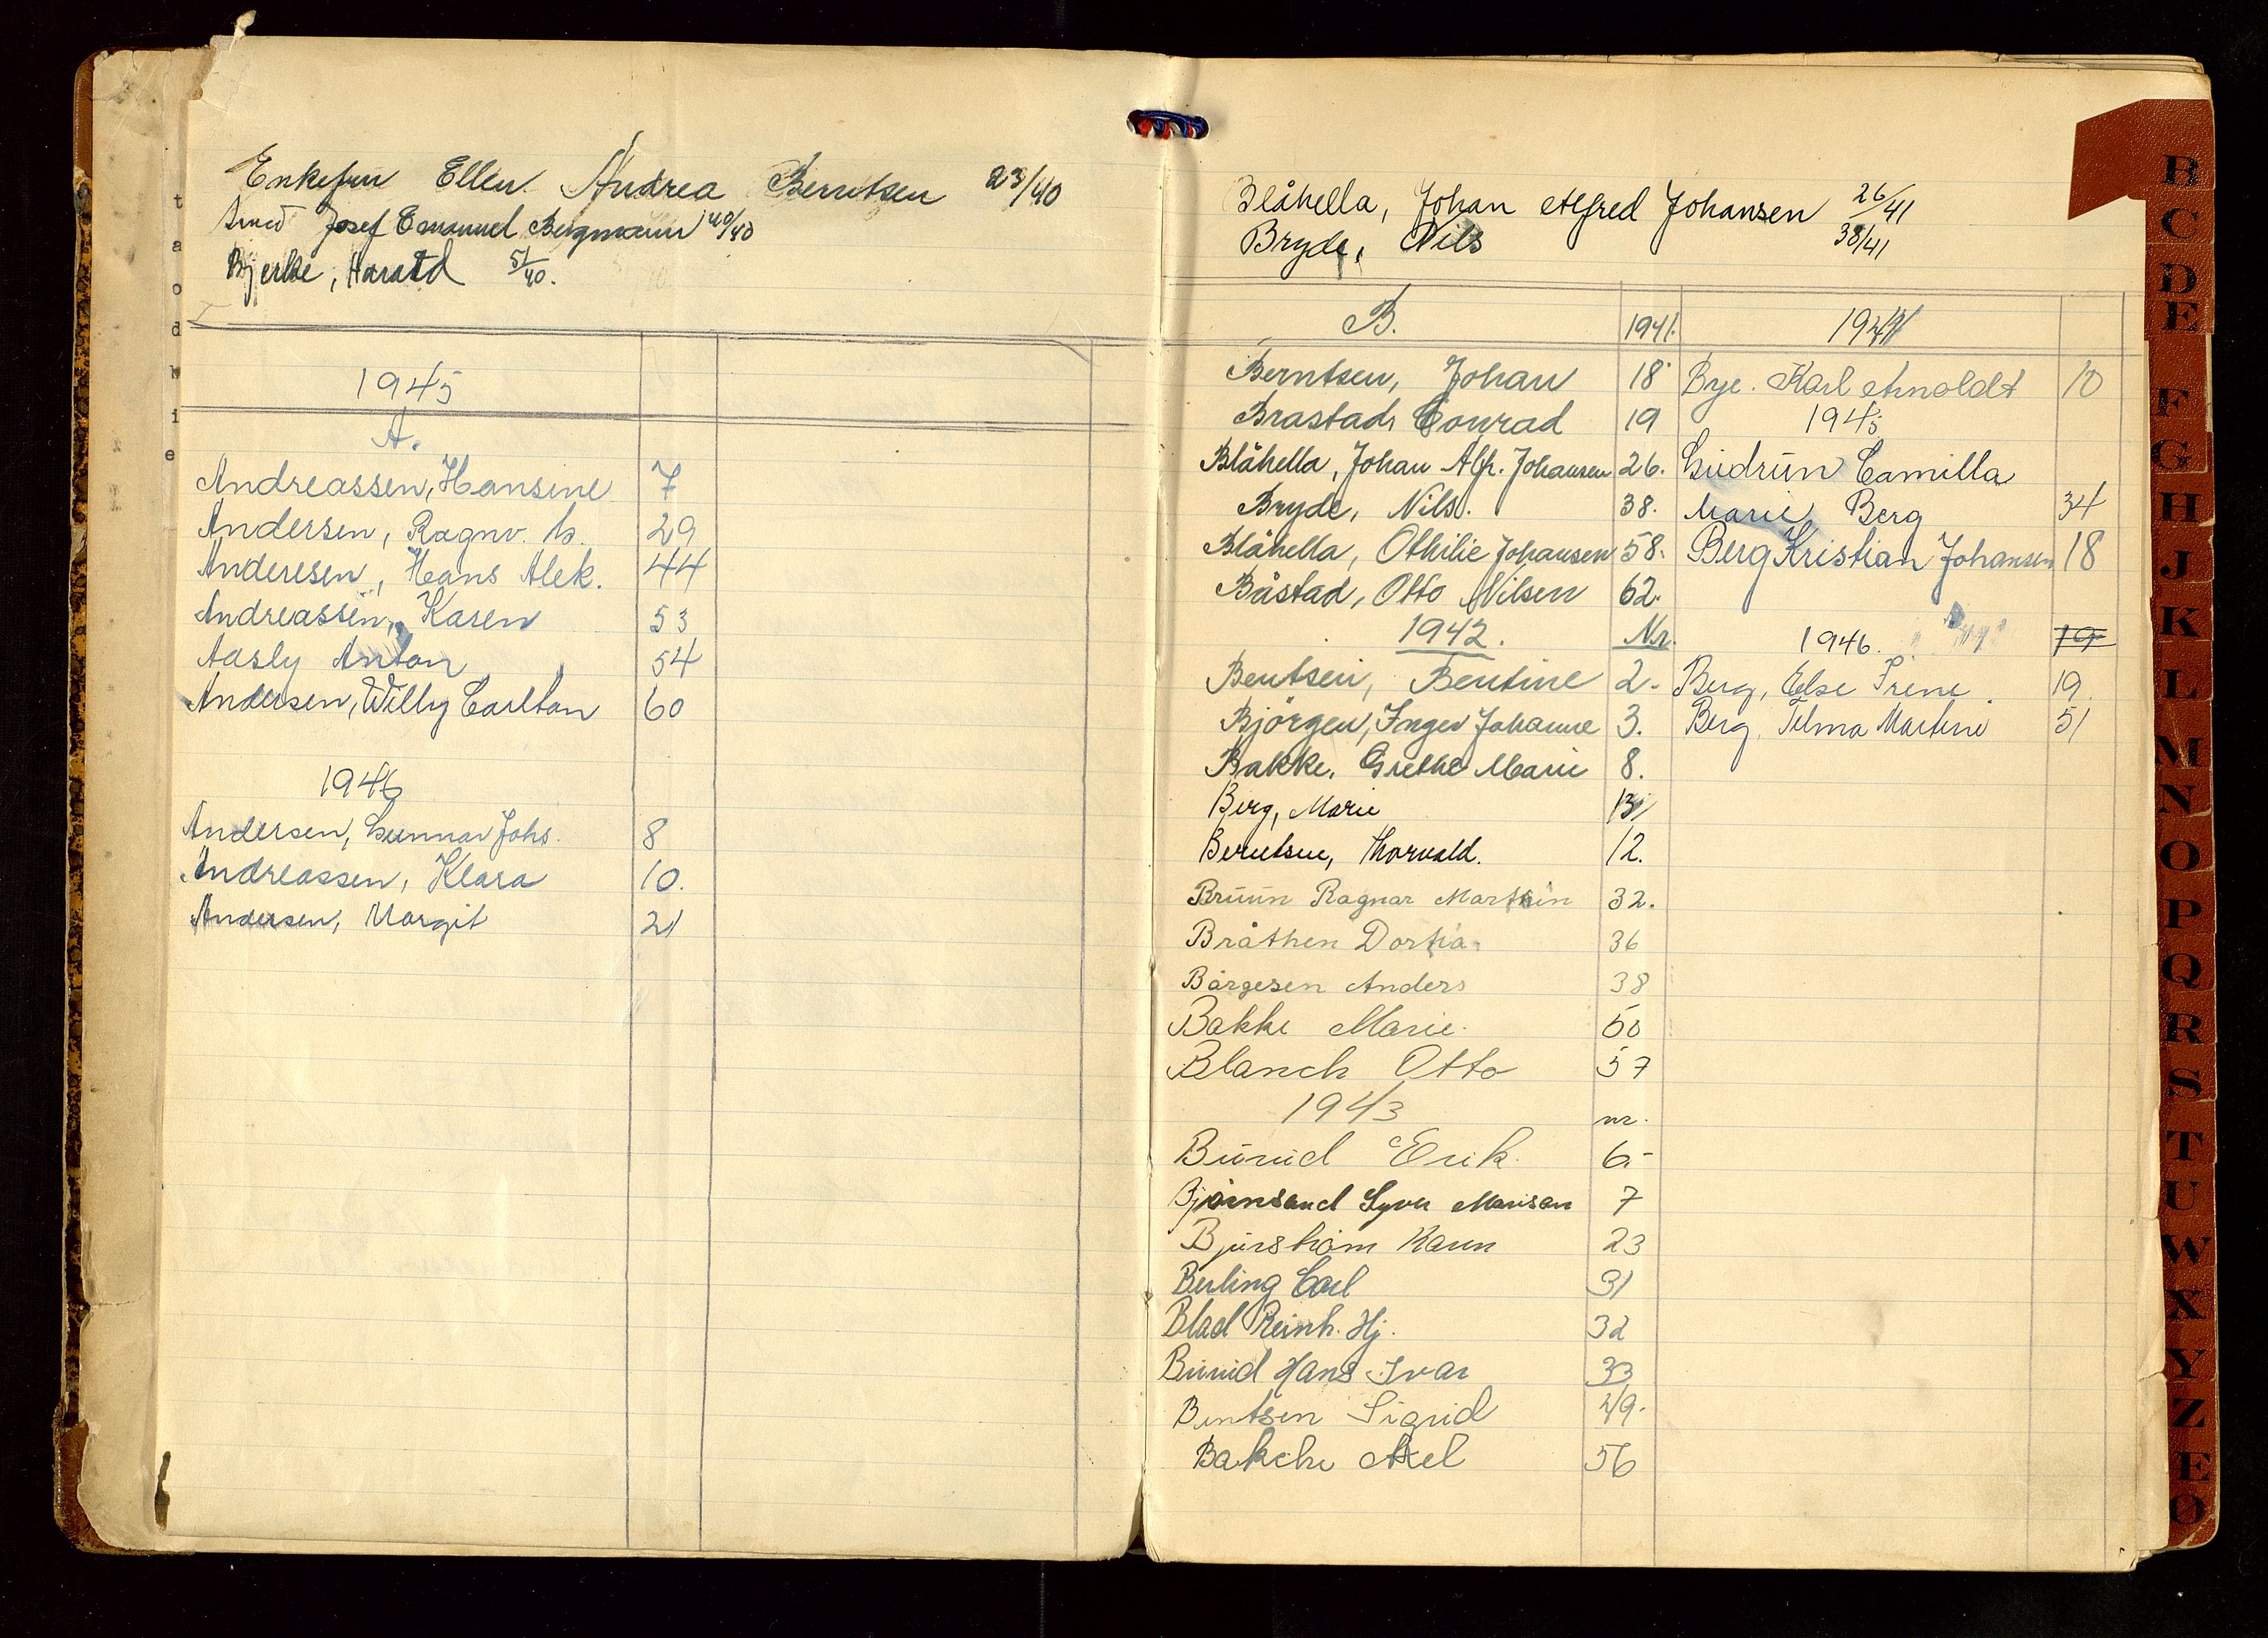 Enkefru Ellen Andrea Berntsen 23/40
Smed Josef Emanuel Bergmann 40/40
Bjerke, Harald 51/40.
1945
A.
Andreassen, Hansine 7
Andersen, Ragnv. 29
Anderesen, Hans Alek. 44
Andreassen, Karen 53
Aasly Anton 54
Andersen, Willy Carlton 60
1946
Andersen, Gunnar Johs. 8
Andreassen, Klara 10.
Andersen, Margit 21
Blåhella, Johan Alfred Johansen 26/41
Bryde, Nils 38/41
B. 1941.
Berntsen, Johan 18
Brastad, Conrad 19
Blåhella, Johan Alfr. Johansen 26.
Bryde, Nils. 38.
Blåhella, Othilie Johansen 58.
Båstad, Otto Nilsen 62.
1942. Nr.
Bentsen, Bentine 2.
Björgen, Inger Johanne 3.
Bakke, Grethe Marie 8.
Berg, Marie
Berntsen, Thorvald. 12.
Bruun Ragnar Marthin 32.
Bråthen Dortea 36
Børgesen Anders 38
Bakke Marie 50
Blanch Otto 57
1943 nr.
Buruid Erik. 6.-
Bjørnsand Syver 7
Bjurstrøm Karen 23
Berling Carl 31
Blad Reinh. Hj. 32
Buruid Hans Ivar 33
Bentsen Sigrid 49.
Bakche Axel 56
Bye. Karl Arnoldt 10
1945
Gudrun Camilla
Marie Berg 34
Berg Kristian Johansen 18
1946. 19
Berg, Else Irene 19.
Berg, Telma Martine 51
B
C
D
E
F
G
H
J
K
L
M
N
O
P
Q
R
S
T
U
W
X
Y
Z
Æ
Ø